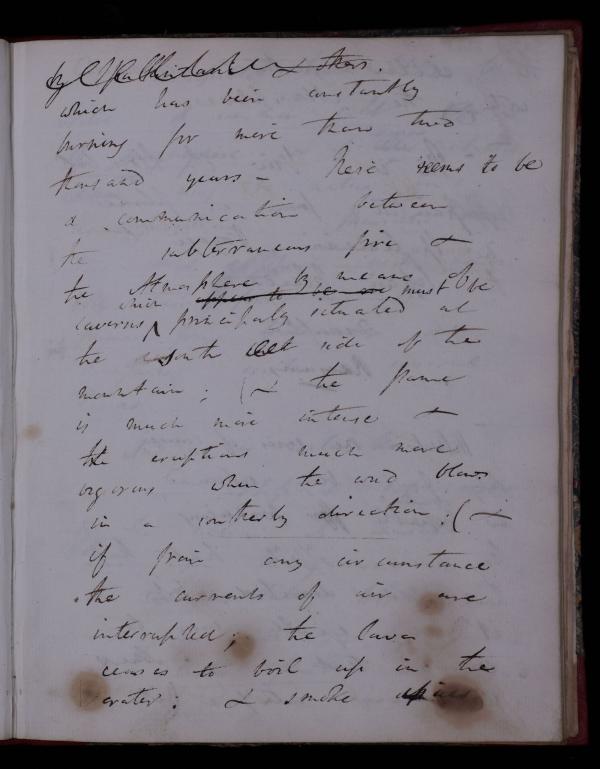 by Spallanzani & others.
which has been constantly
burning for more than two
thousand years – There seems to be
a communication between
the subterraneous fire &
the Atmosphere by means of
which appear to be must be
caverns ^ principally situated at
the south side of the
mountain; (& the flame
is much more intense &
the eruptions much more
vigorous when the wind blows
in a southerly direction: (&
if from any circumstance
the currents of air are
interrupted; the lava
ceases to boil up in the
crater: & smoke